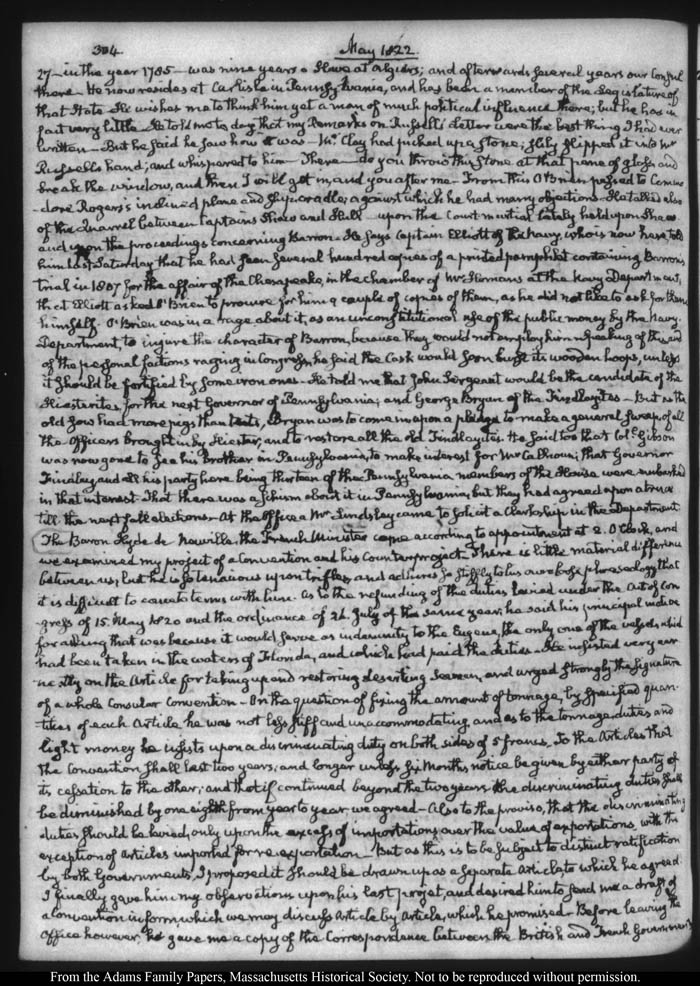 304
May 1822.
27 – in the year 1785 – was nine years a slave at Algiers; and afterwards several years our Consul
there – He now resides at Carlisle in Pennsylvania, and has been a member of the Legislature of
that State – He wishes me to think him yet a man of much political influence there; but he has in
fact very little – He told me to day that my Remarks on Russell's Letter were the best thing I had ever
written – But he said he saw how it was – Mr Clay had picked up a stone; slily slipped it into Mr
Russell's hand; and whispered to him – There – do you throw this stone at that pane of glass and
break the window, and then I will get in, and you after me – From this O'Brien passed to Commo-
-dore Rogers's inclined plane and ship-cradle; against which he had many objections – He talked also
of the Quarrel between Captains Shaw and Hull – upon the Court martial lately held upon Shaw
and upon the proceedings concerning Barron – He says Captain Elliott of the Navy, who is now here told
him last Saturday that he had seen several hundred copies of a printed pamphlet containing Barron's
trial in 1807 for the affair of the Chesapeake, in the chamber of Mr Homans at the Navy Department,
that Elliott asked O'Brien to procure for him a couple of copies of them, as he did not like to ask for them
himself – O'Brien was in a rage about it, as an unconstitutional use of the public money by the Navy
Department, to injure the character of Barron, because they would not employ him – Speaking of the
of the personal factions raging in Congress, he said the Cask would soon burst its wooden hoops, unless
it should be fortified by some iron ones – He told me that John Sergeant would be the candidate of the
Hiesterites, for the next Governor of Pennsylvania; and George Bryan of the Findlayites – But as the
old sow had more pigs than teats, Bryan was to come in upon a pledge to make a general sweep of all
the Officers brought in by Hiester, and to restore all the old Findlayites. He said too that Col. Gibson
was now gone to see his Brother in Pennsylvania, to make interest for Mr Calhoun; that Governor
Findlay and all his party here being thirteen of the Pennsylvania members of the House were embarked
in that interest – That there was a schism about it in Pennsylvania; but they had agreed upon a truce
till the next fall elections – At the Office a Mr Lindslay came to solicit a Clerkship in the Department
The Baron Hyde de Neuville, the French Minister came according to appointment at 2. O'Clock, and
we examined my project of a Convention and his Counterproject. There is little material difference
between us; but he is so tenacious upon trifles, and adheres so stiffly to his own loose phraseology that
it is difficult to concert terms with him. As to the refunding of the duties levied under the Act of Con
gress of 15. May 1820 and the ordinance of 26. July of the same year, he said his principal motive
for asking that was because it would serve as indemnity to the Eugene, the only one of the vessels which
had been taken in the waters of Florida, and which had paid the duties – He insisted very ear
nestly on the Article for taking up and restoring deserting Seamen, and urged strongly the signature
of a whole Consular Convention – On the question of fixing the amount of tonnage, by specified quan-
tities of each Article he was not less stiff and unaccommodating, and as to the tonnage duties and
light money he insists upon a discriminating duty on both sides of 5 francs. To the Articles that
the Convention shall last two years, and longer unless six Months notice be given by either party of
its cessation to the other; and that if continued beyond the two years the discriminating duties shall
be diminished by one eighth from year to year we agreed – Also to the proviso, that the discriminating
duties should be levied, only upon the excess of importations over the value of exportations, with the
exception of articles imported for re-exportation – But as this is to be subject to distinct ratification
by both Governments, I proposed it should be drawn up as a separate Article, to which he agreed.
I finally gave him my observations upon his last projet, and desired him to send me a draft of
a Convention in form, which we may discuss Article by Article, which he promised – Before leaving the
Office however, he gave me a copy of the Correspondence between the British and French Governments
From the Adams Family Papers, Massachusetts Historical Society. Not to be reproduced without permission.